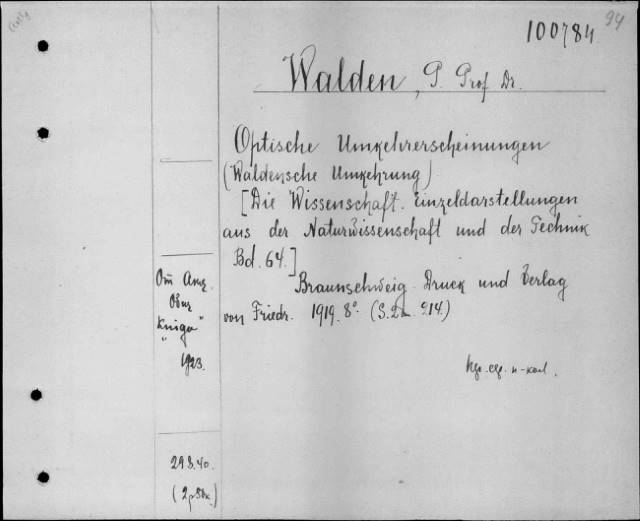 100784
94
Walden, P. Prof Dr.
Optische Umkehrerscheinungen
(Waldensche Umkehrung)
[Die Wissenschaft. Einzeldarstellungen
aus der Naturwissenschaft und der Technik
Bd. 64.]
Braunschweig Druck und Verlag
von Friedr. 1919. 8°. (S.
Kniga"
1923.
29.8.40.